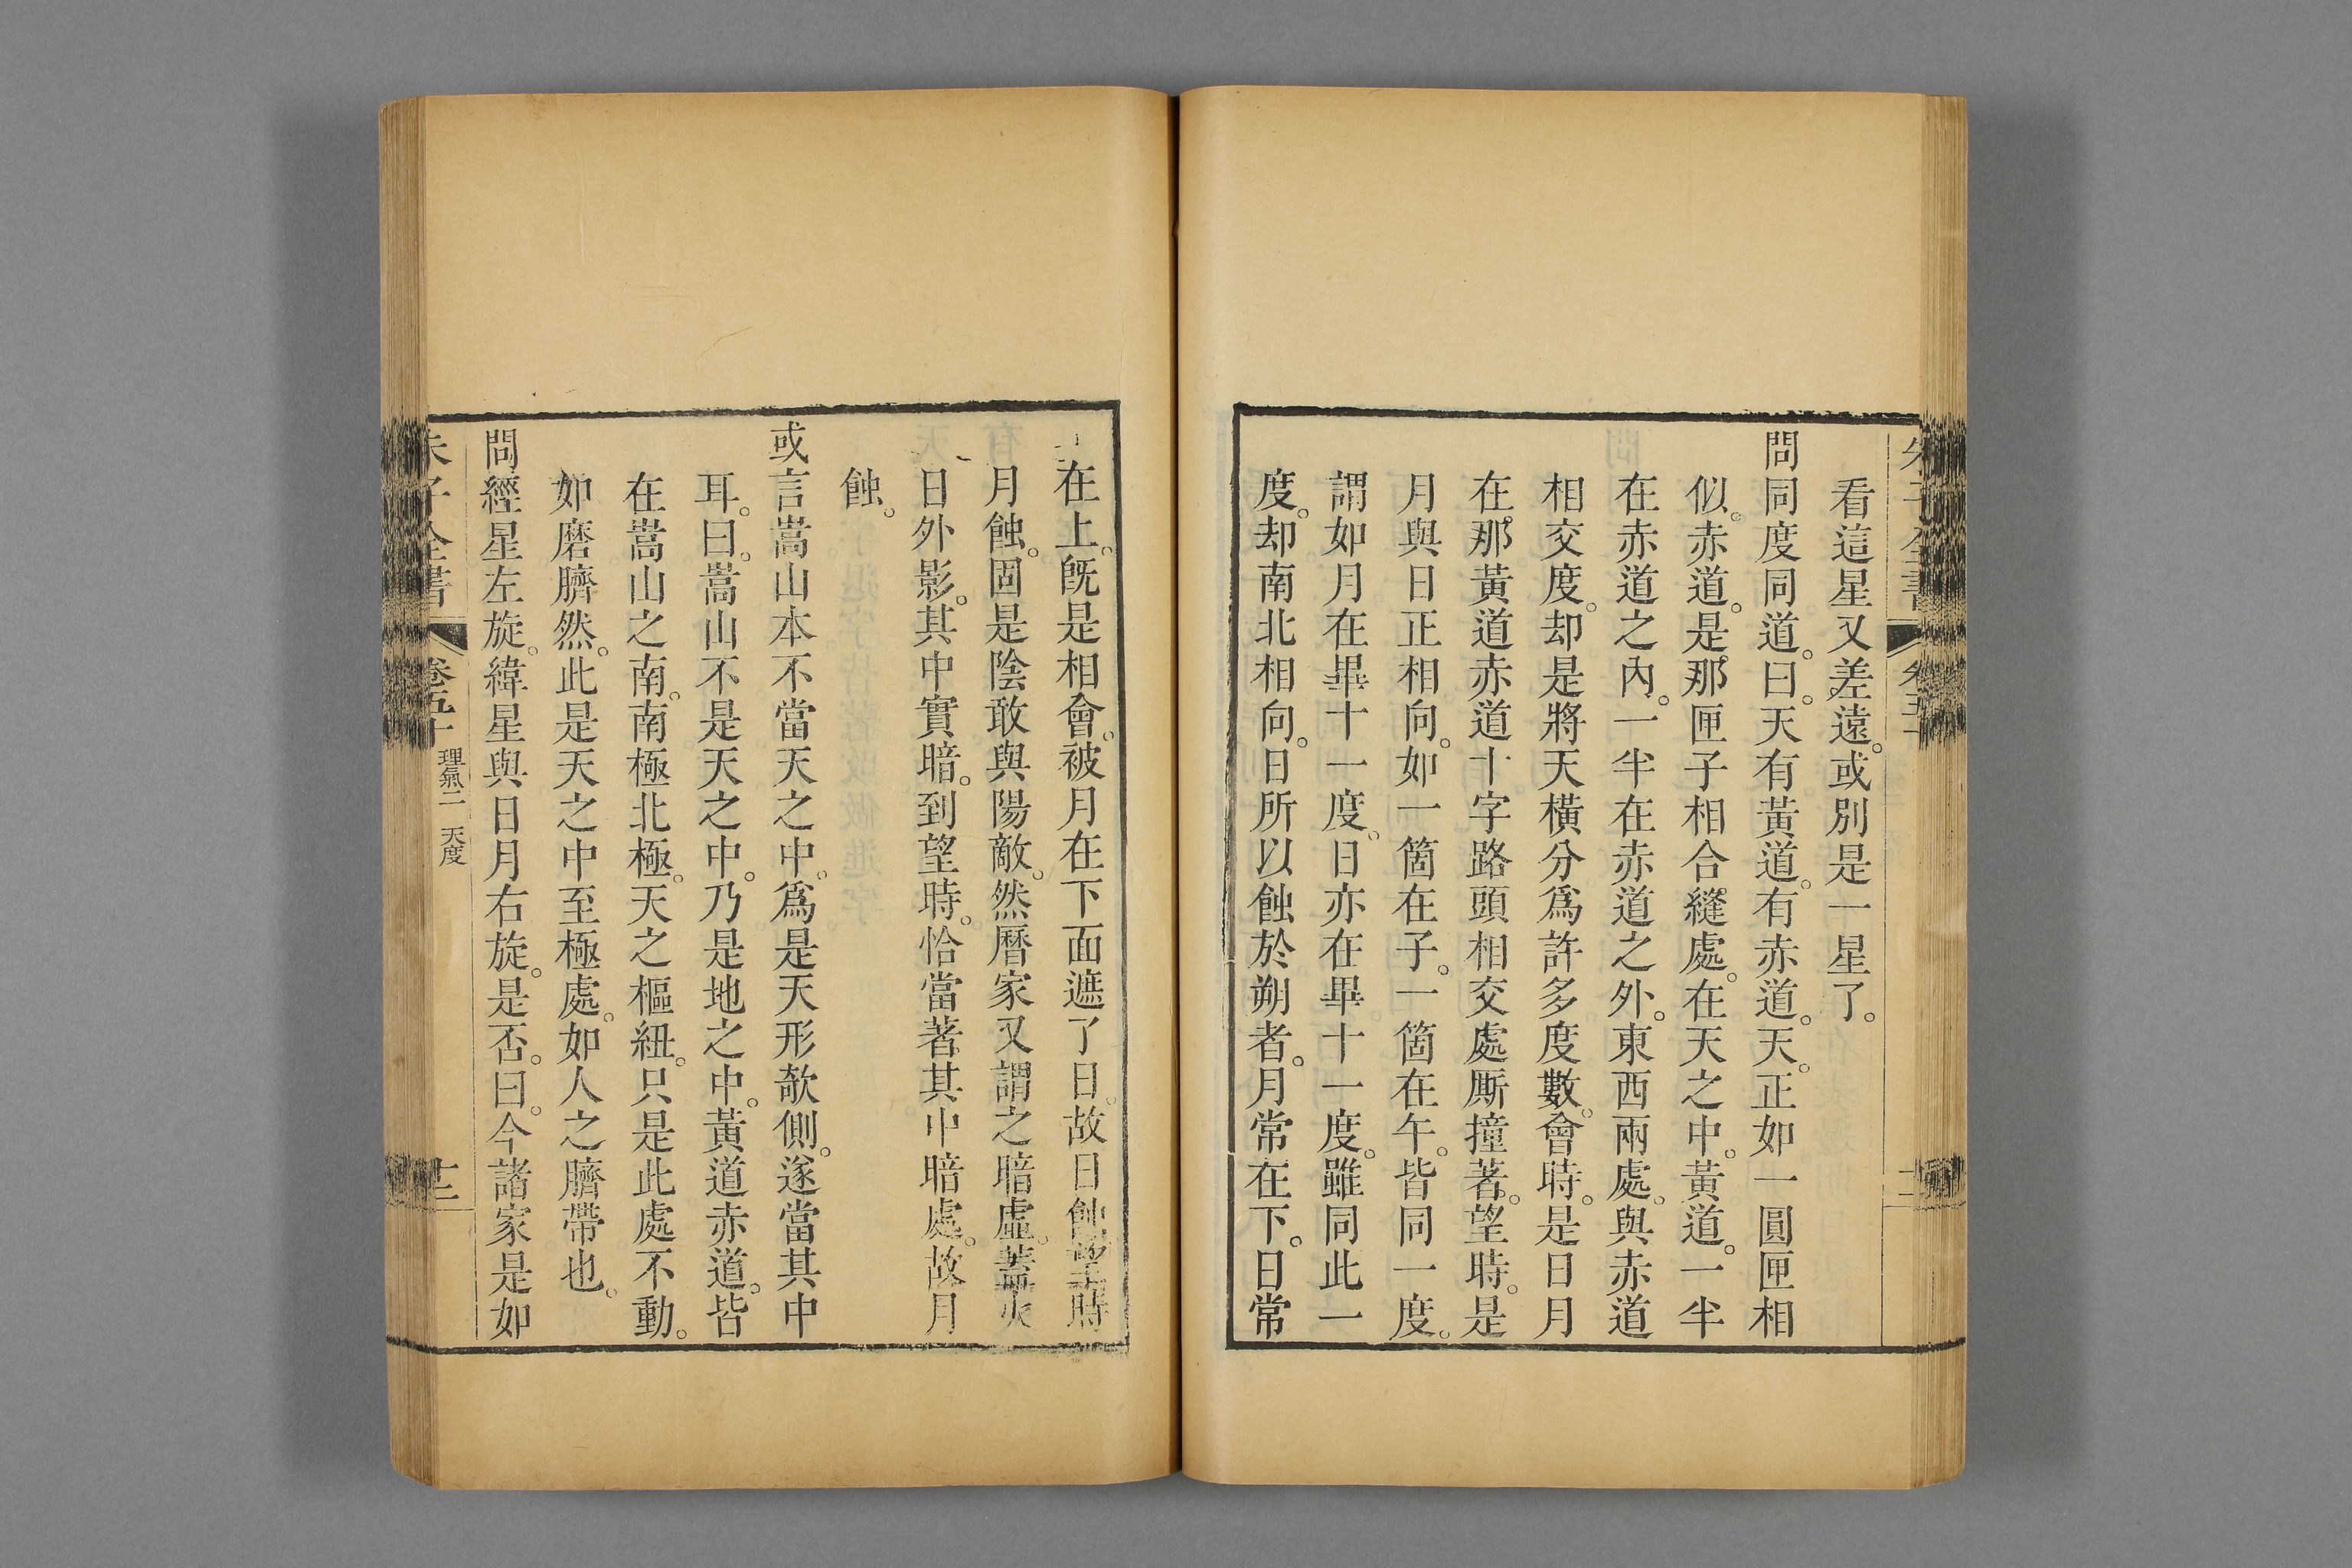 看這星又差遠。或別是一星了。
問同度同道。曰。天有黃道。有赤道。天。正如一圓匣相
似。赤道。是那匣子相合縫處。在天之中。黃道。一半
在赤道之內。一半在赤道之外。東西兩處。與赤道
相交度。却是將天橫分爲許多度數。會時。是日月
在那黃道赤道十字路頭相交處厮撞著。望時。是
月與日正相向。如一箇在子。一箇在午。皆同一度。
謂如月在畢十一度。日亦在畢十一度。雖同此一
度。却南北相向。日所以蝕於朔者。月常在下。日常
在上。旣是相會。被月在下面遮了日。故日蝕。望時
月蝕。固是陰敢與陽敵。然曆家又謂之暗虛。蓋火
日外影。其中實暗。到望時。恰當著其中暗處。故月
蝕。
或言嵩山本不當天之中。爲是天形欹側。遂當其中
耳。曰。嵩山不是天之中。乃是地之中。黃道赤道。皆
在嵩山之南。南極北極。天之樞紐。只是此處不動。
如磨臍然。此是天之中至極處。如人之臍帶也。
問經星左旋。緯星與日月右旋。是否。曰。今諸家是如
朱子全書 卷五十 理氣二 天度